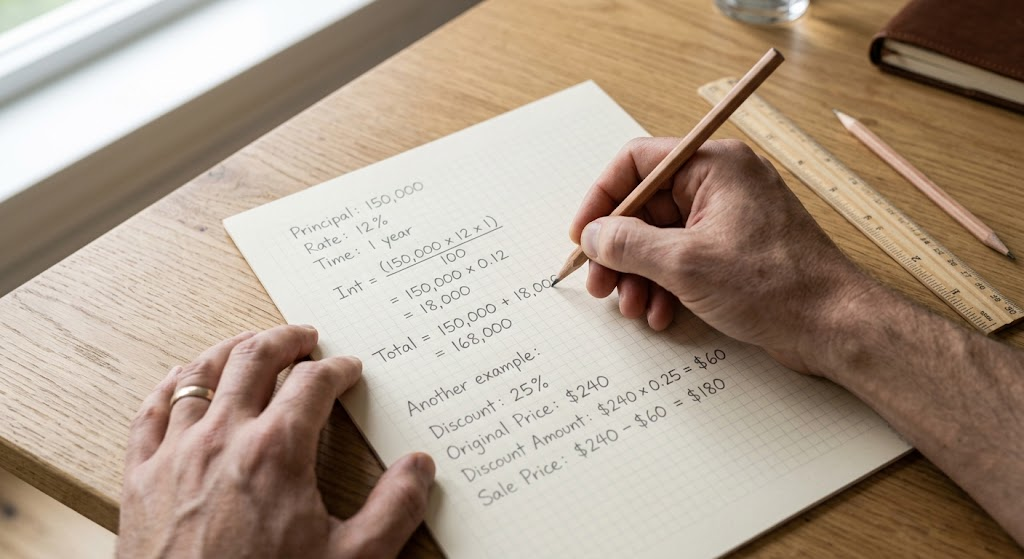 Principal: 150,000
Rate: 12%
Time: 1 year
Int = (150,000 × 12 × 1)
100
= 150,000 × 0.12
= 18,000
Total = 150,000 + 18,000
= 168,000
Another example:
Discount: 25%
Original Price: $240
Discount Amount: $240 × 0.25 = $60
Sale Price: $240 − $60 = $180